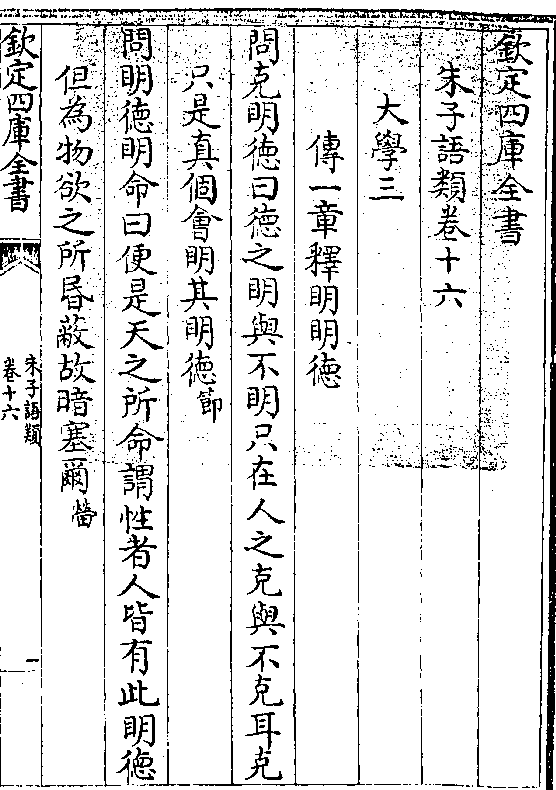 欽定四庫全書
朱子語類卷十六
大學三
傳一章釋明明德
問克明德曰德之明與不明只在人之克與不克耳克
只是真個會明其明德節
問明德明命曰便是天之所命謂性者人皆有此明德
但為物欲之所昏蔽故暗塞爾㽦
欽定四庫全書
朱子語類
卷十六
一